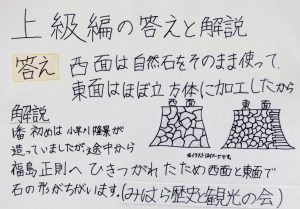 上級編の答えと解説
答え 西面は自然石をそのまま使って、
東面はほぼ立方体に加工したから
西面 東面
※イラストはイメージです。
解説
潘初めは小早川隆景が
造っていましたが途中から
福島正則へひきつがれたため西面と東面で
石の形がちがいます。(みはら歴史と観光の会)